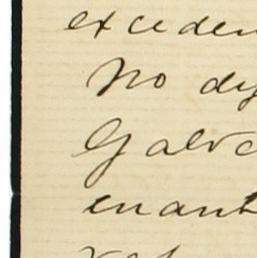 exceden
No dej
Galve
enant